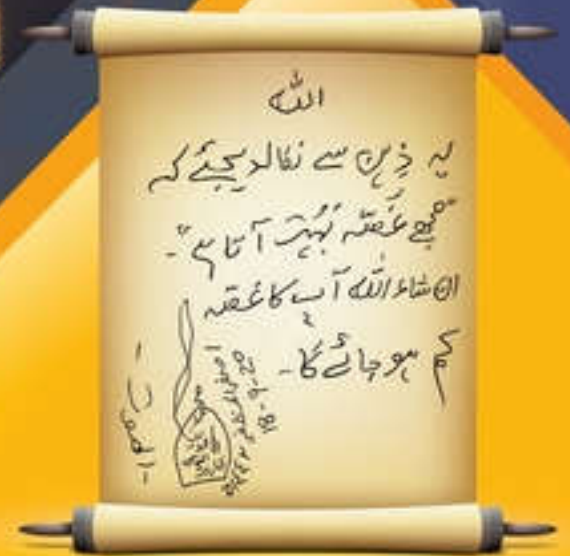 اللہ
یہ ذہن سے نکالدیجئے کہ
"مجھے غُصّہ بُہُت آتا ہے"۔
ان شاء اللہ آپ کا غُصّہ
کم ہو جائے گا۔
18-9-20
-الموت-